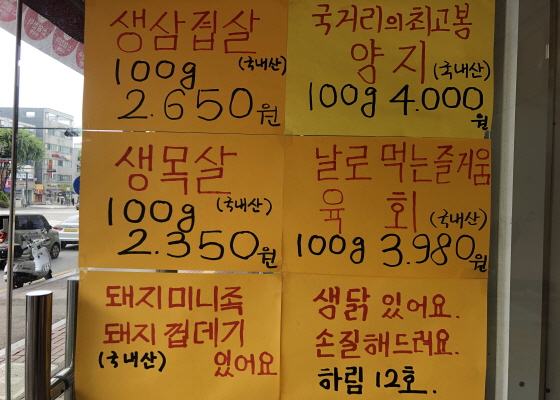 생삼집살
100g (국내산)
2.650원
국거리의최고봉
양지 (국내산)
100g 4.000원
생목살
100g (국내산)
2.350원
날로 먹는즐거움
육회 (국내산)
100g 3.980원
돼지미니족
돼지껍데기
(국내산) 있어요
생닭 있어요.
손질해드려요.
하림 12호.